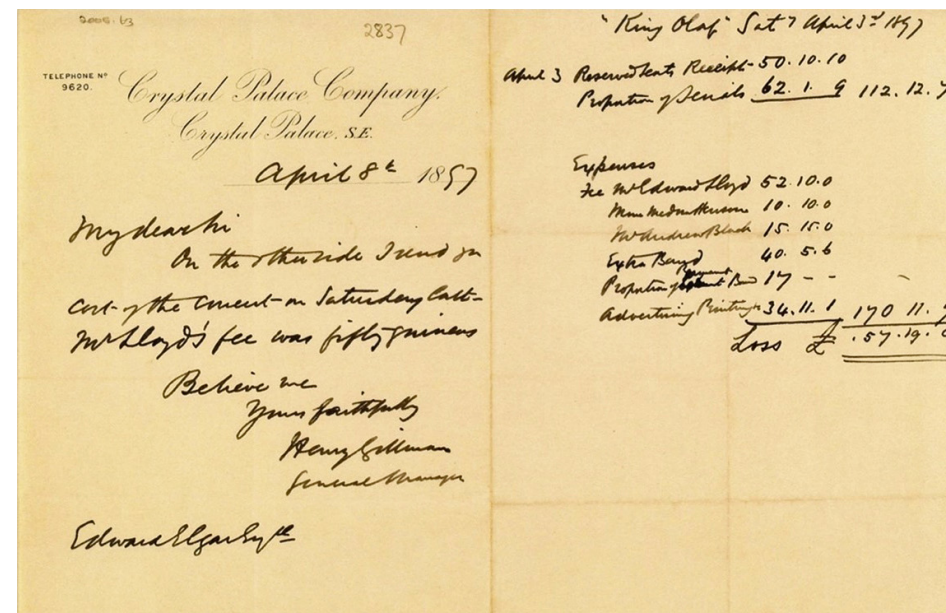 2005.63
2837
TELEPHONE Nº
9620.
Crystal Palace Company.
Crystal Palace. S.E.
April 8th 1897
My dear Sir
On the other side I send you
cost of the concert on Saturday last
Mr Lloyd's fee was fifty guineas
Believe me
Yours faithfully
Henry Gillman
General Manager
Edward Elgar Esqre
"King Olaf" Sat April 3rd 1897
April 3 Reserved Seats Receipts 50.10.10
Proportion of Serials 62.1.9 112.12.7
Expenses
Fee Mr Edward Lloyd 52.10.0
10.10.0
Mr Andrew Black 15.15.0
Extra Band 40.5.6
Proportion of Permanent Band 17 - -
Advertising Printing 34.11.1 170 11.
Loss £ 57.19.